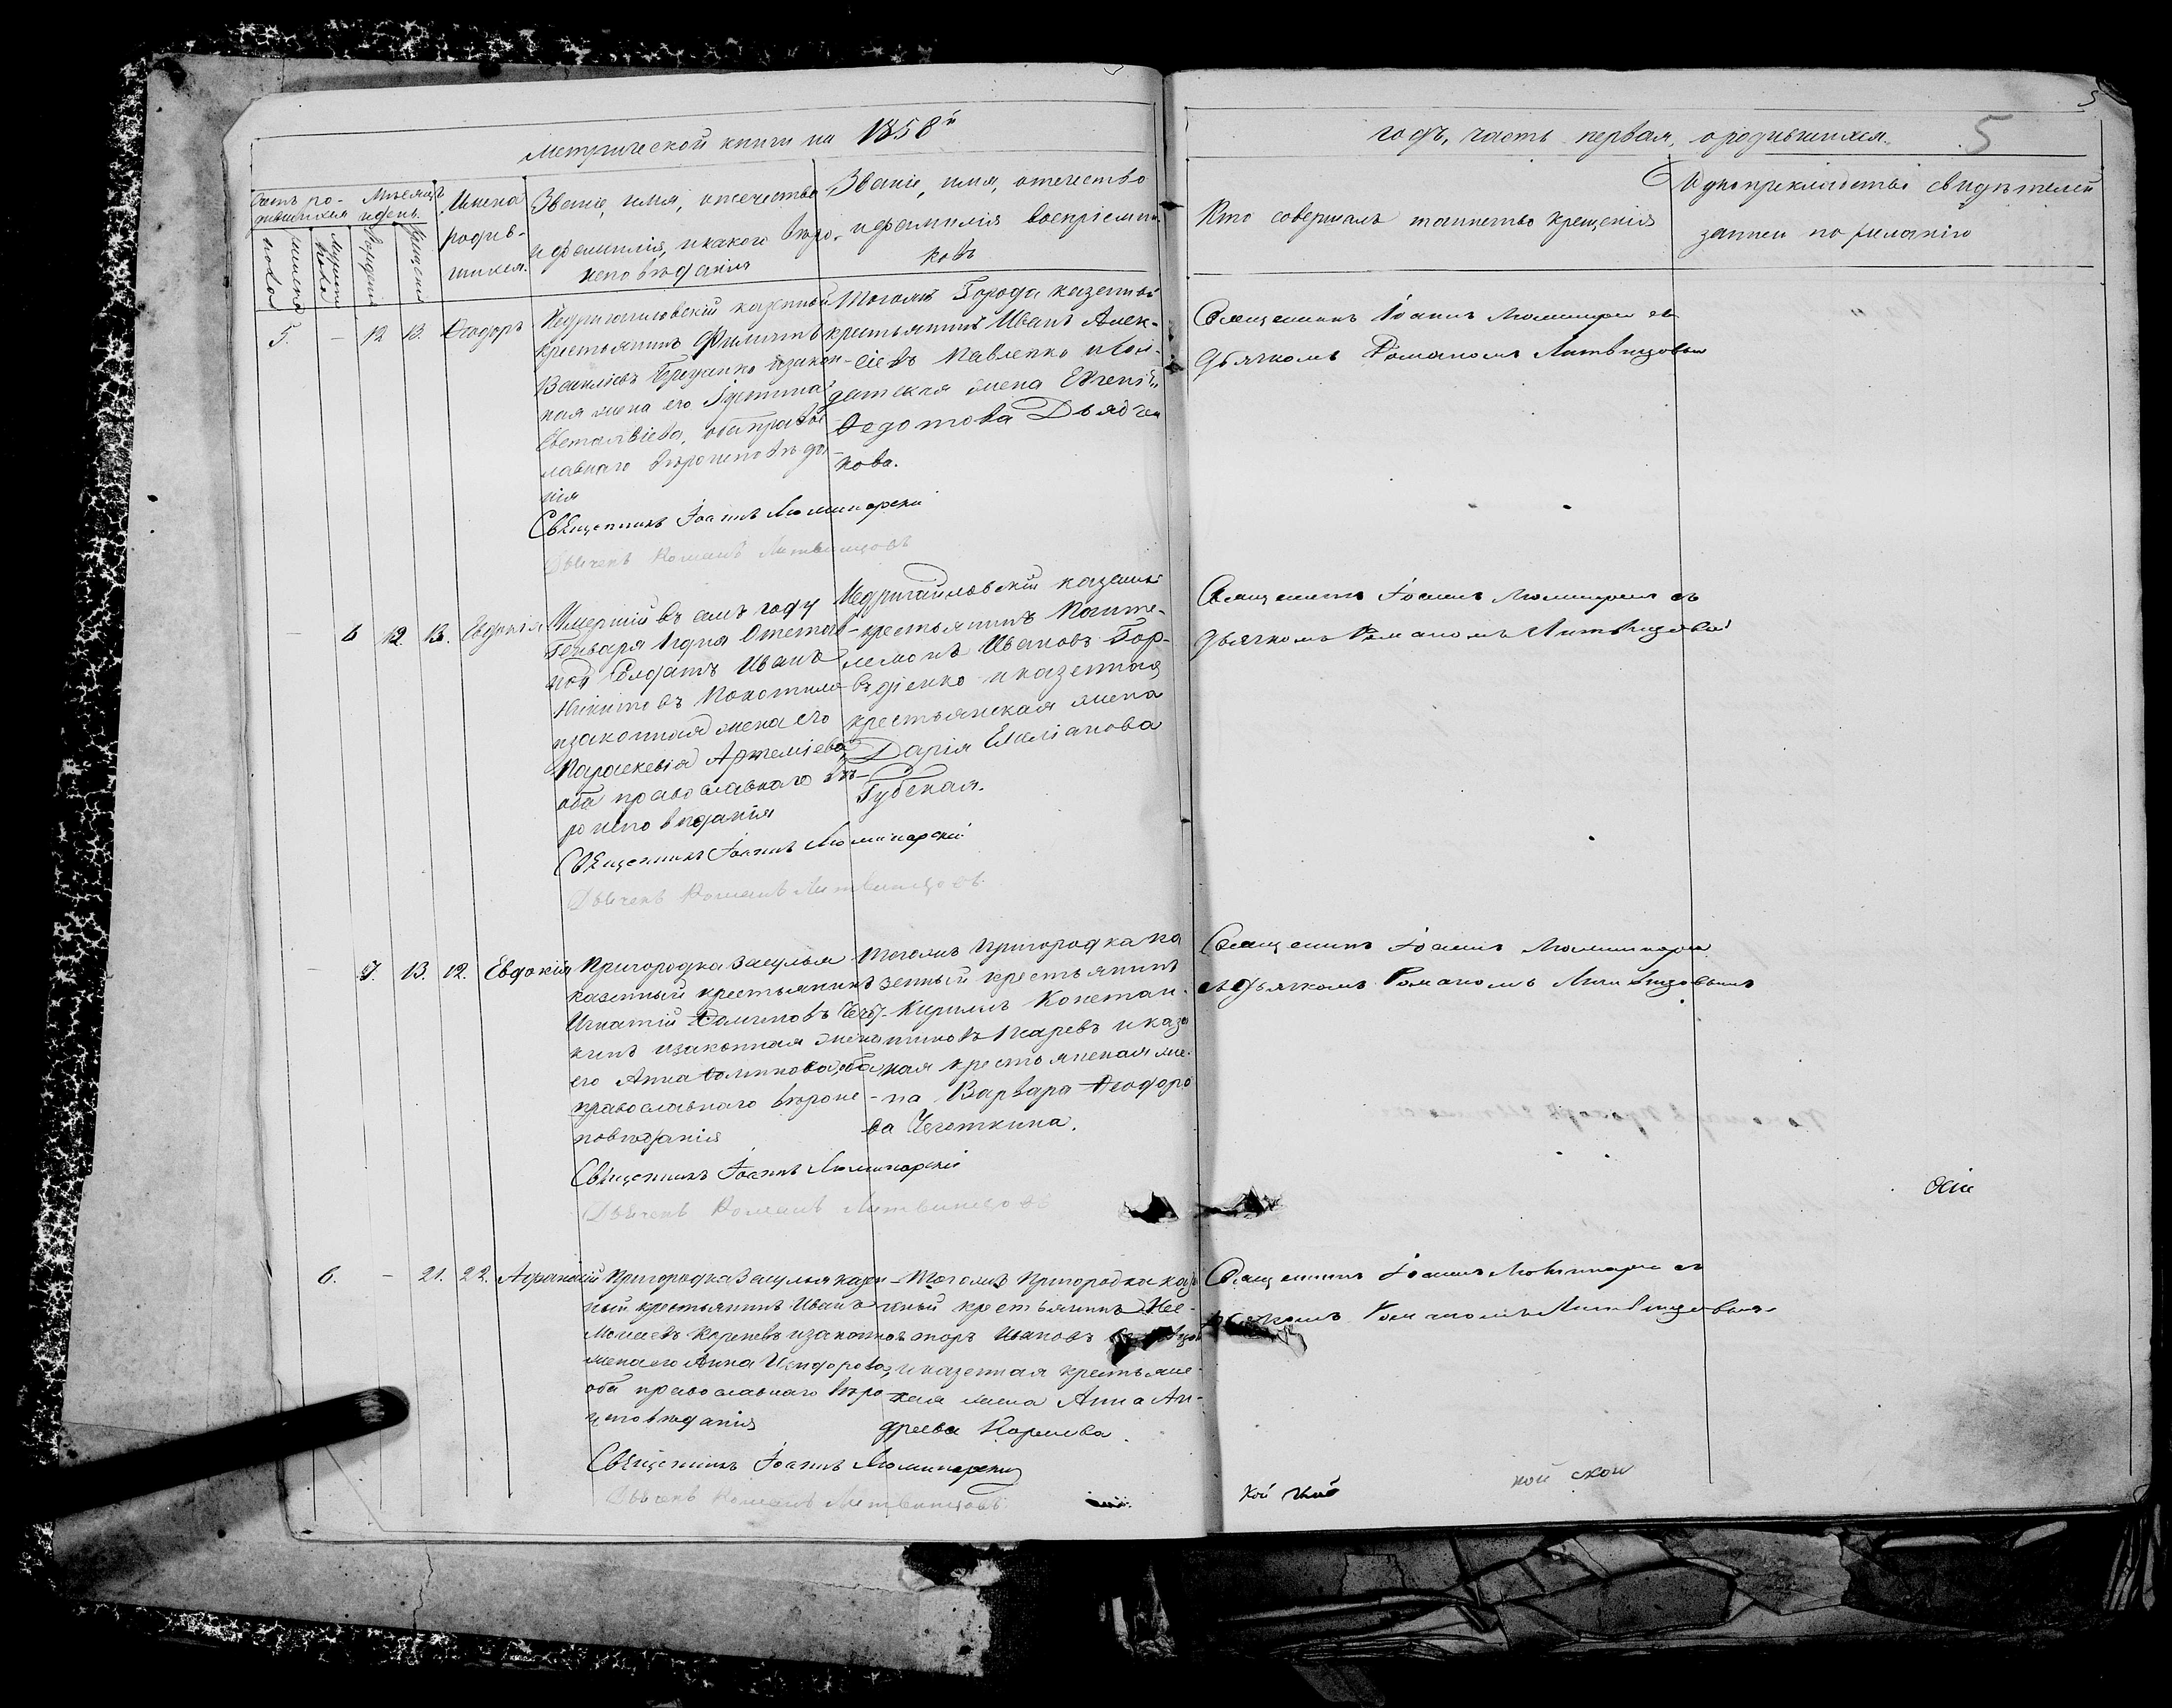 Метрической книги на 1858й
годъ, часть первая, о родившихся. 5
5
Счетъ ро-
дившихся
Мѣсяцъ
и день.
Имена
родив-
шихся.
Званіе, имя, отечество
и фамилія, и какого вѣро-
исповѣданія
Званіе, имя, отечество
и фамилія воспріемни-
ковъ
Кто совершалъ таинство крещенія
Рукоприкладство свидѣтелей
записи по желанію
5. – 12 13. Ѳеодоръ
Недригайловскій казенный
крестьянинъ Филиппъ
Василіевъ и закон-
ная жена его Іустина
обa право
славнаго вѣроисповѣда
нія
Священникъ Іоаннъ Люминарскій
Дьячекъ Романъ Литвинцовъ
Тогожъ Города казенный
крестьянинъ Иванъ Алек-
сіевъ Павленко и сол-
датская жена Евгенія
Ѳедотова Дьядчен
кова.
Священникъ Іоаннъ Люминарск съ
дьячкомъ Романомъ Литвинцовым
6 12. 13. Евдокія
Умершій въ семъ году
Генваря 1 дня Отстав-
ной Солдатъ Иванъ
Никитовъ Покотило
и законная жена его
Параскевія Артеміева,
оба православнаго вѣ-
роисповѣданія
Священникъ Іоаннъ Люминарскій
Дьячекъ Романъ Литвинцовъ
Недригайловскій казенный
крестьянинъ Панте-
лемонъ Ивановъ Гор-
дѣенко и казенная
крестьянская жена
Дарія Емеліанова
Губская.
Священникъ Іоаннъ Люминарск съ
дьячкомъ Романомъ Литвинцовым
– 7. 13. 12. Евдокія
Пригородка Засулья
казенный крестьянинъ
Игнатій
кинъ и законная жена
его Анна оба
православнаго вѣроис-
повѣданія
Священникъ Іоаннъ Люминарскій
Дьячекъ Романъ Литвинцовъ
Тогожъ Пригородка ка
зенный крестьянинъ
Кирилъ Констан-
тиновъ и казе
ная крестьянская же-
на Варвара Ѳеодоро
ва Чечоткина.
Священникъ Іоаннъ Люминарск
съ дьячкомъ Романомъ Литвинцовымъ
6. – 21. 22. Аѳанасій
Пригородка Засулья казен
ный крестьянинъ Иванъ
Моисеевъ Кореневъ и законная
жена его Анна Исидорова,
оба православнаго вѣро
исповѣданія
Священникъ Іоаннъ Люминарскій
Дьячекъ Романъ Литвинцовъ
Тогожъ Пригородка казе
ный крестьянинъ Нес-
торъ Ивановъ
и казенная крестьянс-
кая жена Анна Ан-
дреева Коренева.
Священникъ Іоаннъ Люминарск съ
дьячкомъ Романомъ Литвинцовымъ
кой
кой ской